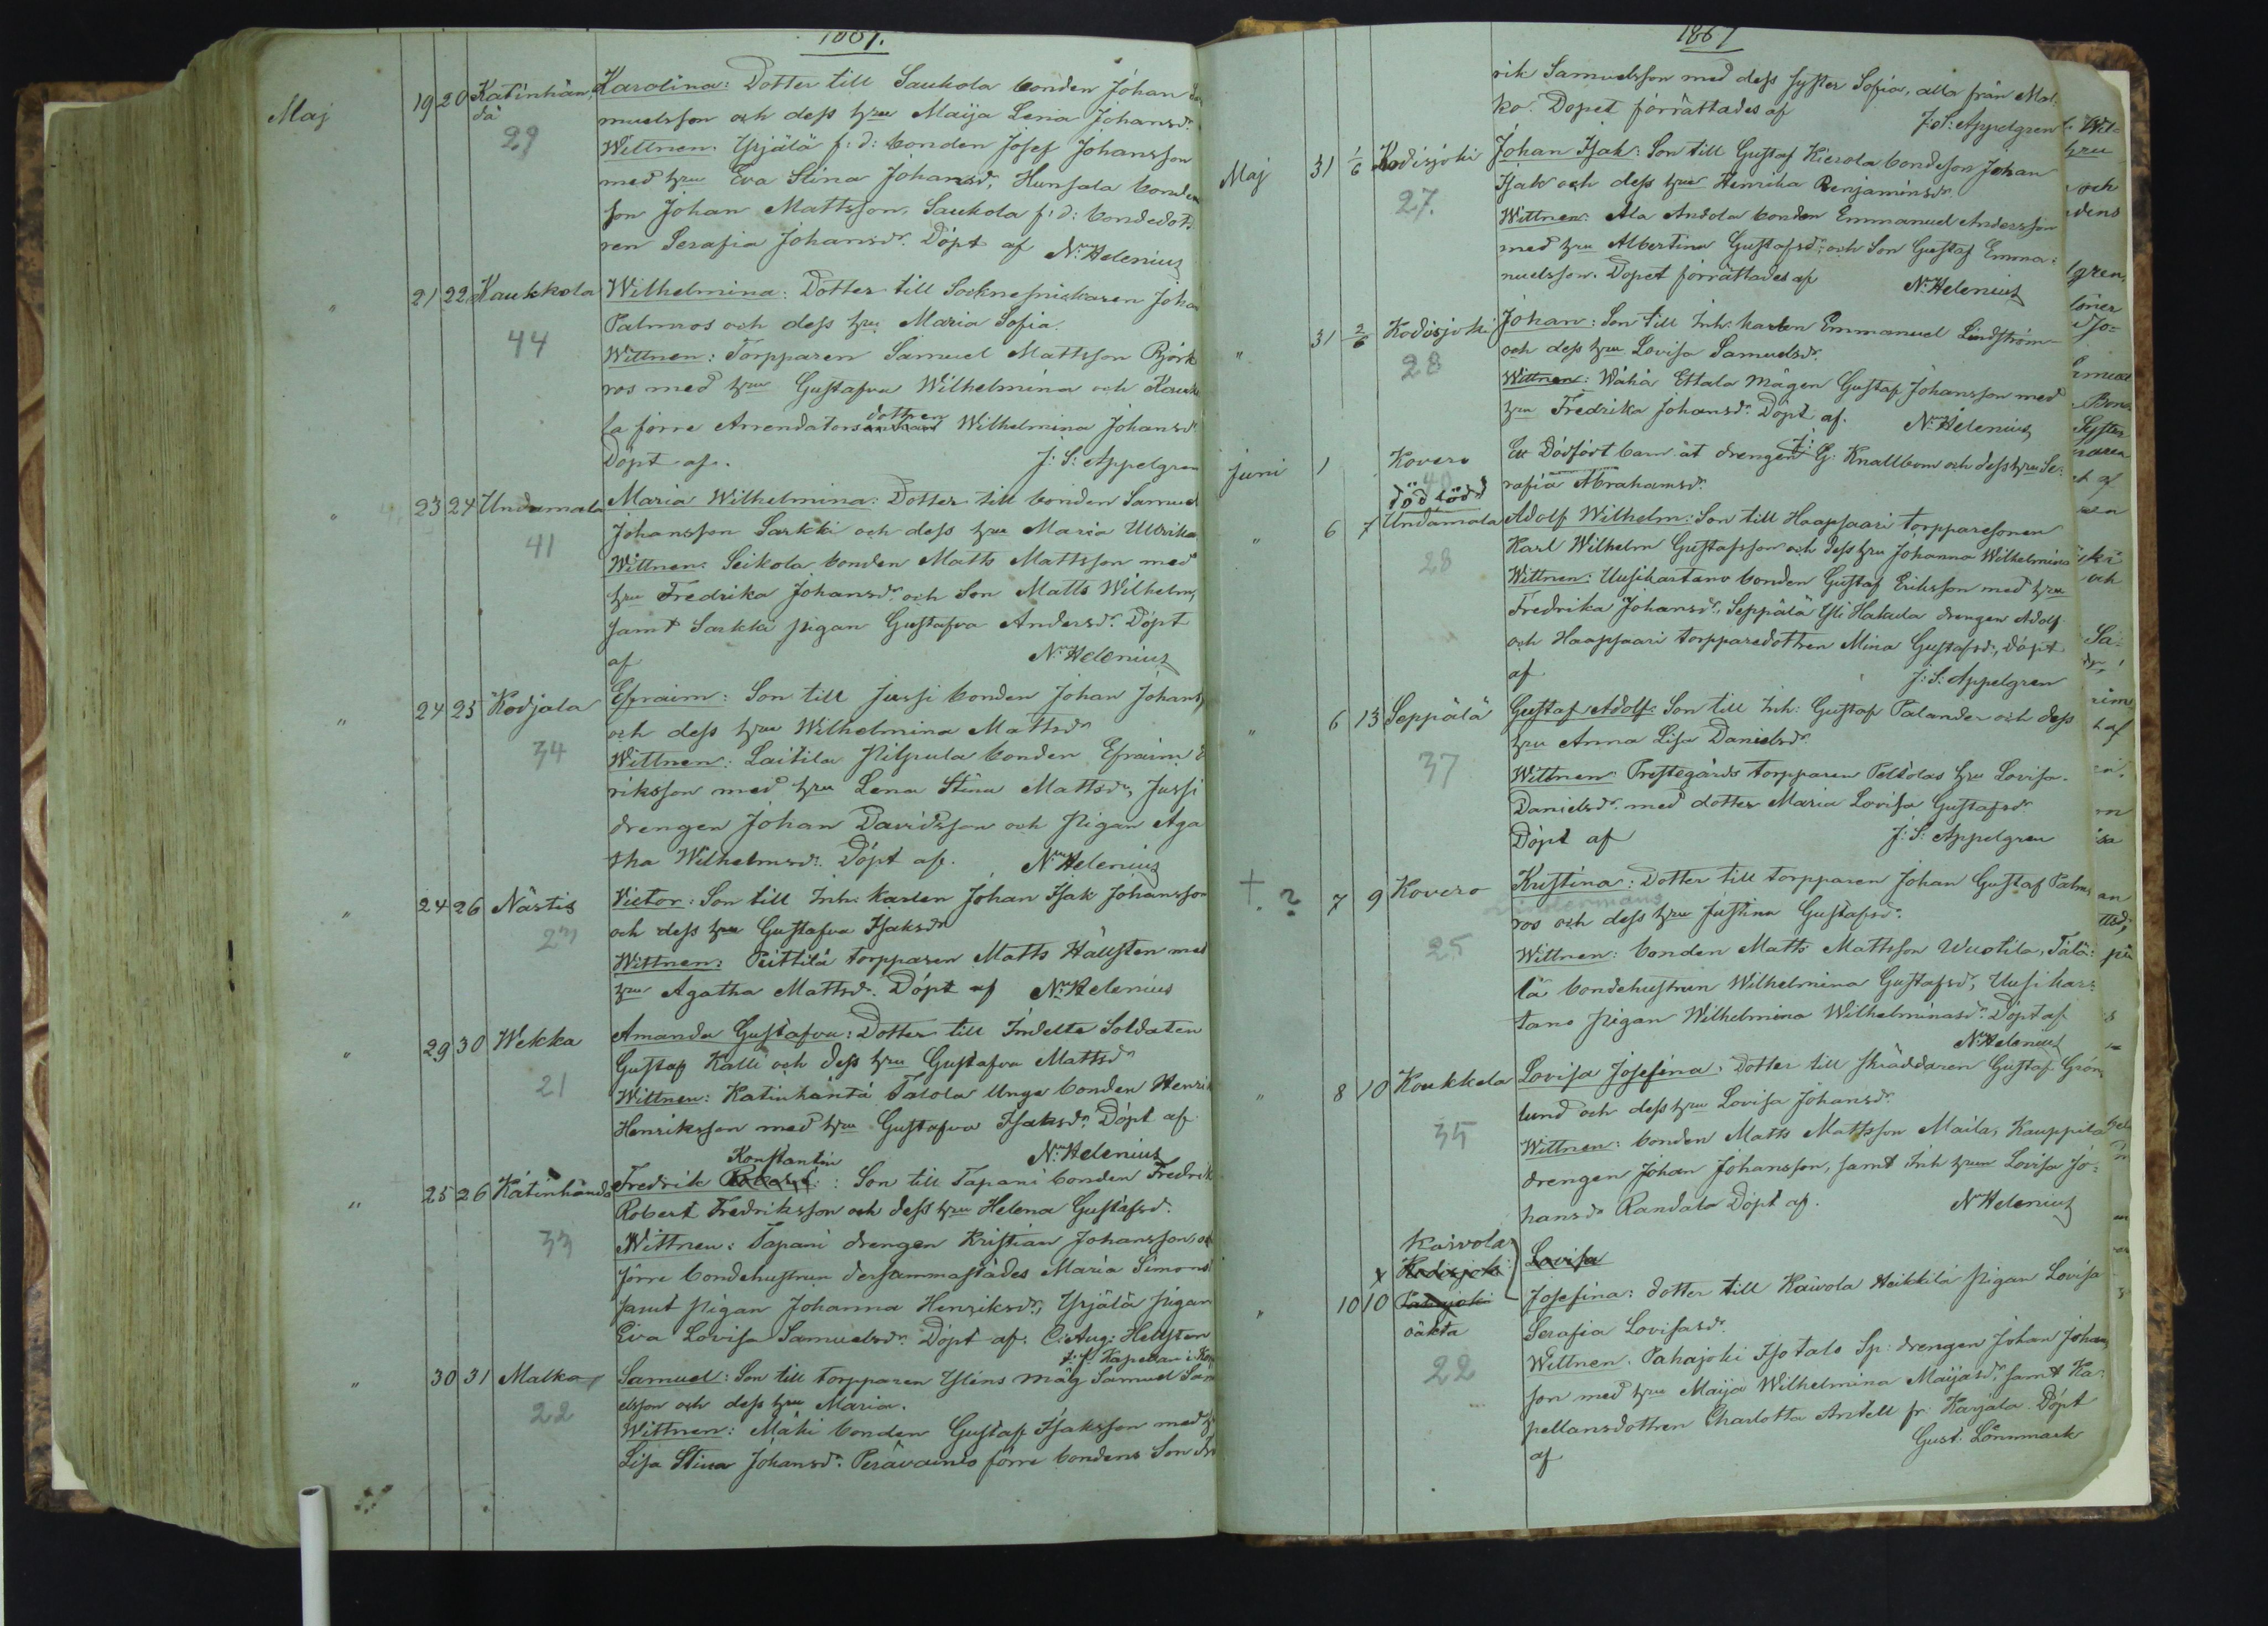 1867.
Maj 19 20 Katinhän= Karolina: Dotter till Saukola bonden Johan
dä muelsson och dess hru Maija Lena Johansdr
29 Wittnen. Yrjälä f: d: bonden Josef Johansson
med hru Eva Stina Johansdr, Hunsala bonde
son Johan Mattsson, Saukola f: d: bondedot
ren Serafia Johansdr. Döpt af N: Helenius
" 21 22 Kaukkola Wilhelmina: Dotter till Sockneskräddaren Joha
Palmros och dess hru Maria Sofia.
44 Wittnen: Torpparen Samuel Mattsson Björk
ros med hru Gustafva Wilhelmina och Kauk
la förre Arrendators dottren Wilhelmina Johansdr
Döpt af. J: S: Appelgren
" 23 24 Undamala Maria Wilhelmina: Dotter till bonden Samuel
Johansson Sarkki och dess hru Maria Ullrika
41 Wittnen: Seikola bonden Matts Mattsson med
hru Fredrika Johansdr och Son Matts Wilhelm,
samt Sarkki pigan Gustafva Andersdr. Döpt
af N: Helenius
" 24 25 Kodjala Efraim: Son till Jussi bonden Johan Johans
och dess hru Wilhelmina Mattsdr
34 Wittnen: Laitila Pilpula bonden Efraim
riksson med hru Lena Stina Mattsdr, Jussi
drengen Johan Davidsson och Pigan Aga
tha Wilhelmsdr. Döpt af. N: Helenius
" 24 26 Nästis Victor: Son till Inh: karlen Johan Isak Johansson
och dess hru Gustafva Isaksdr
27 Wittnen: Peittilä torpparen Matts Hällsten med
hru Agatha Mattsdr. Döpt af N: Helenius
" 29 30 Wekka Amanda Gustafva: Dotter till Indelte Soldaten
Gustaf Kalli och dess hru Gustafva Mattsdr
21 Wittnen: Katinhäntä Talola Unga bonden Henrik
Henriksson med hru Gustafva Isaksdr Döpt af
N: Helenius
Konstantin
" 25 26 Katinhändä Fredrik Robert: Son till Tapani bonden Fredrik
Robert Fredriksson och dess hru Helena Gustafsdr.
33 Wittnen: Tapani drengen Kristian Johansson, och
förre bondehustrun dersammastädes Maria Simons
samt pigan Johanna Henriksdr, Yrjälä pigan
Eva Lovisa Samuelsdr. Döpt af: C: Aug: Hellsten
t: f: Kapellan i
" 30 31 Malko Samuel: Son till torpparen Ylins måg Samuel Sam
elsson och dess hru Maria.
22 Wittnen: Mäki bonden Gustaf Isaksson med
Lisa Stina Johansdr. Perävainio förre bondens Son
1867
rik Samuelsson med dess syster Sofia, alla från Mal=
ko. Dopet förrättades af J: S: Appelgren
Maj 31 1/6 Kodisjoki Johan Isak: Son till Gustaf Kierola bondeson Johan
Isak och dess hru Henrika Benjaminsdr.
27. Wittnen: Ala Andola bonden Emmanuel Andersson
med hru Albertina Gustafsdr, och Son Gustaf Emma=
nuelsson. Dopet förrättades af N: Helenius
" 31 2/6 Kodisjoki Johan: Son till Inh: karlen Emmanuel Lindström
och dess hru Lovisa Samuelsdr.
28 Wittnen: Wähä Ettala mågen Gustaf Johansson med
hru Fredrika Johansdr. Döpt af. N: Helenius
Juni 1 Kovero Ett Dödfödt barn åt drengen J: G: Knallbom och dess hru Se=
40 rafia Abrahamsdr.
död född
" 6 7 Undamala Adolf Wilhelm: Son till Haapsaari torpparesonen
Karl Wilhelm Gustafsson och dess hru Johanna Wilhelmina
28 Wittnen: Uusikartano bonden Gustaf Eriksson med hru
Fredrika Johansdr, Seppälä Yli Hakala drengen Adolf
och Haapsaari torpparedottren Mina Gustafsdr, döpt
af J: S: Appelgren
" 6 13 Seppälä Gustaf Adolf: Son till Inh: Gustaf Palander och dess
hru Anna Lisa Danielsdr.
37 Wittnen: Prestegårds torpparen Peltolas hru Lovisa
Danielsdr. med dotter Maria Lovisa Gustafsdr
Döpt af J: S: Appelgren
+ ? 7 9 Kovero Kristina: Dotter till torpparen Johan Gustaf Palm
ros och dess hru Justina Gustafsdr.
25 Wittnen: bonden Matts Mattsson Wuotila, Tälä=
lä bondehustrun Wilhelmina Gustafsdr, Uusi kar=
tano pigan Wilhelmina Wilhelminasdr. Döpt af
N: Helenius
" 8 10 Koukkela Lovisa Josefina: Dotter till skräddaren Gustaf Grön=
lund och dess hru Lovisa Johansdr.
35 Wittnen: bonden Matts Mattsson Maila, Kauppila
drengen Johan Johansson, samt Inh hrun Lovisa Jo=
hansdr Randala Döpt af. N Helenius
Kaivola
x Kodisjoki Lovisa
" 10 10 Pahajoki Josefina: dotter till Kaivola Heikkilä pigan Lovisa
oäkta Serafia Lovisasdr.
22 Wittnen. Pahajoki Isotalo Sp: drengen Johan Johans
son med hru Maija Wilhelmina Maijasdr, samt Ka=
pellansdottren Charlotta Antell fr: Karjala Döpt
af Gust. Lönnmark